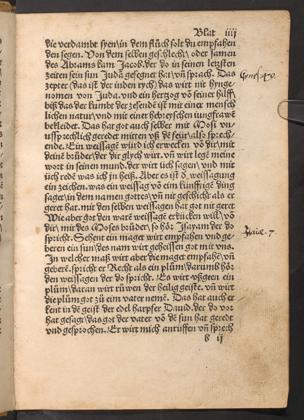 Blat iiij
die verdambt syen/in dem flůch solt du empfahen
den segen. Von dem selben geschlecht/ oder samen
des Abrams kam Jacob. der do in seinen letsten
zeiten sein sun Judā gesegnet hat/vn̄ sprach. Das
zepter (das ist der iuden rych) das wirt nit hynge-
nomen von Juda. vnd ein hertzog vō seiner hůff/
biß das der kumbt der zesende ist mit einer mensch
lichen natur/vnd mit einer hebreischen iungfrawē
bekleidet. Das hat got auch selber mit Mosi vn-
ussprechlich geredet mitten vß dē feür/also sprech-
ende. Ein weissagē würd ich erwecken vō dir/mit
deinē brüder/der dir glych wirt. vn̄ wirt legē meine
wort in seinen mund. der wirt üch sagen/vnd mit
üch redē was ich in heiß. Aber es ist d' weissagung
ein zeichen. was ein weissag võ eim künfftigē ding
sagt/in dem namen gottes/vn̄ nit geschicht als er
geret hat. mit den selben weissagen hat got nit geret
Wie aber got den warē weissagē erkücken will/ võ
dir/mit des Moses brüder/ so hör Isayam der do
spricht. Sehent ein magt wirt empfahen vnd ge-
beren ein sun/des nam wirt geheissen got mit vns.
In welcher maß wirt aber die magt empfahē/vn̄
geberē. spricht er
den weissagen der do spricht. Es wirt vßgen ein
plům/daran wirt růwen der heilig geist. vn̄ wirt
die plům got zů eim vater nemē. Das hat auch er
kent in dē geist der edel harpfer Dauid. der do vor
hat gesagt/das got der vater võ dē sun hat geredt
vnd gesprochen. Er wirt mich anrüffen vn̄ sprech
b ij